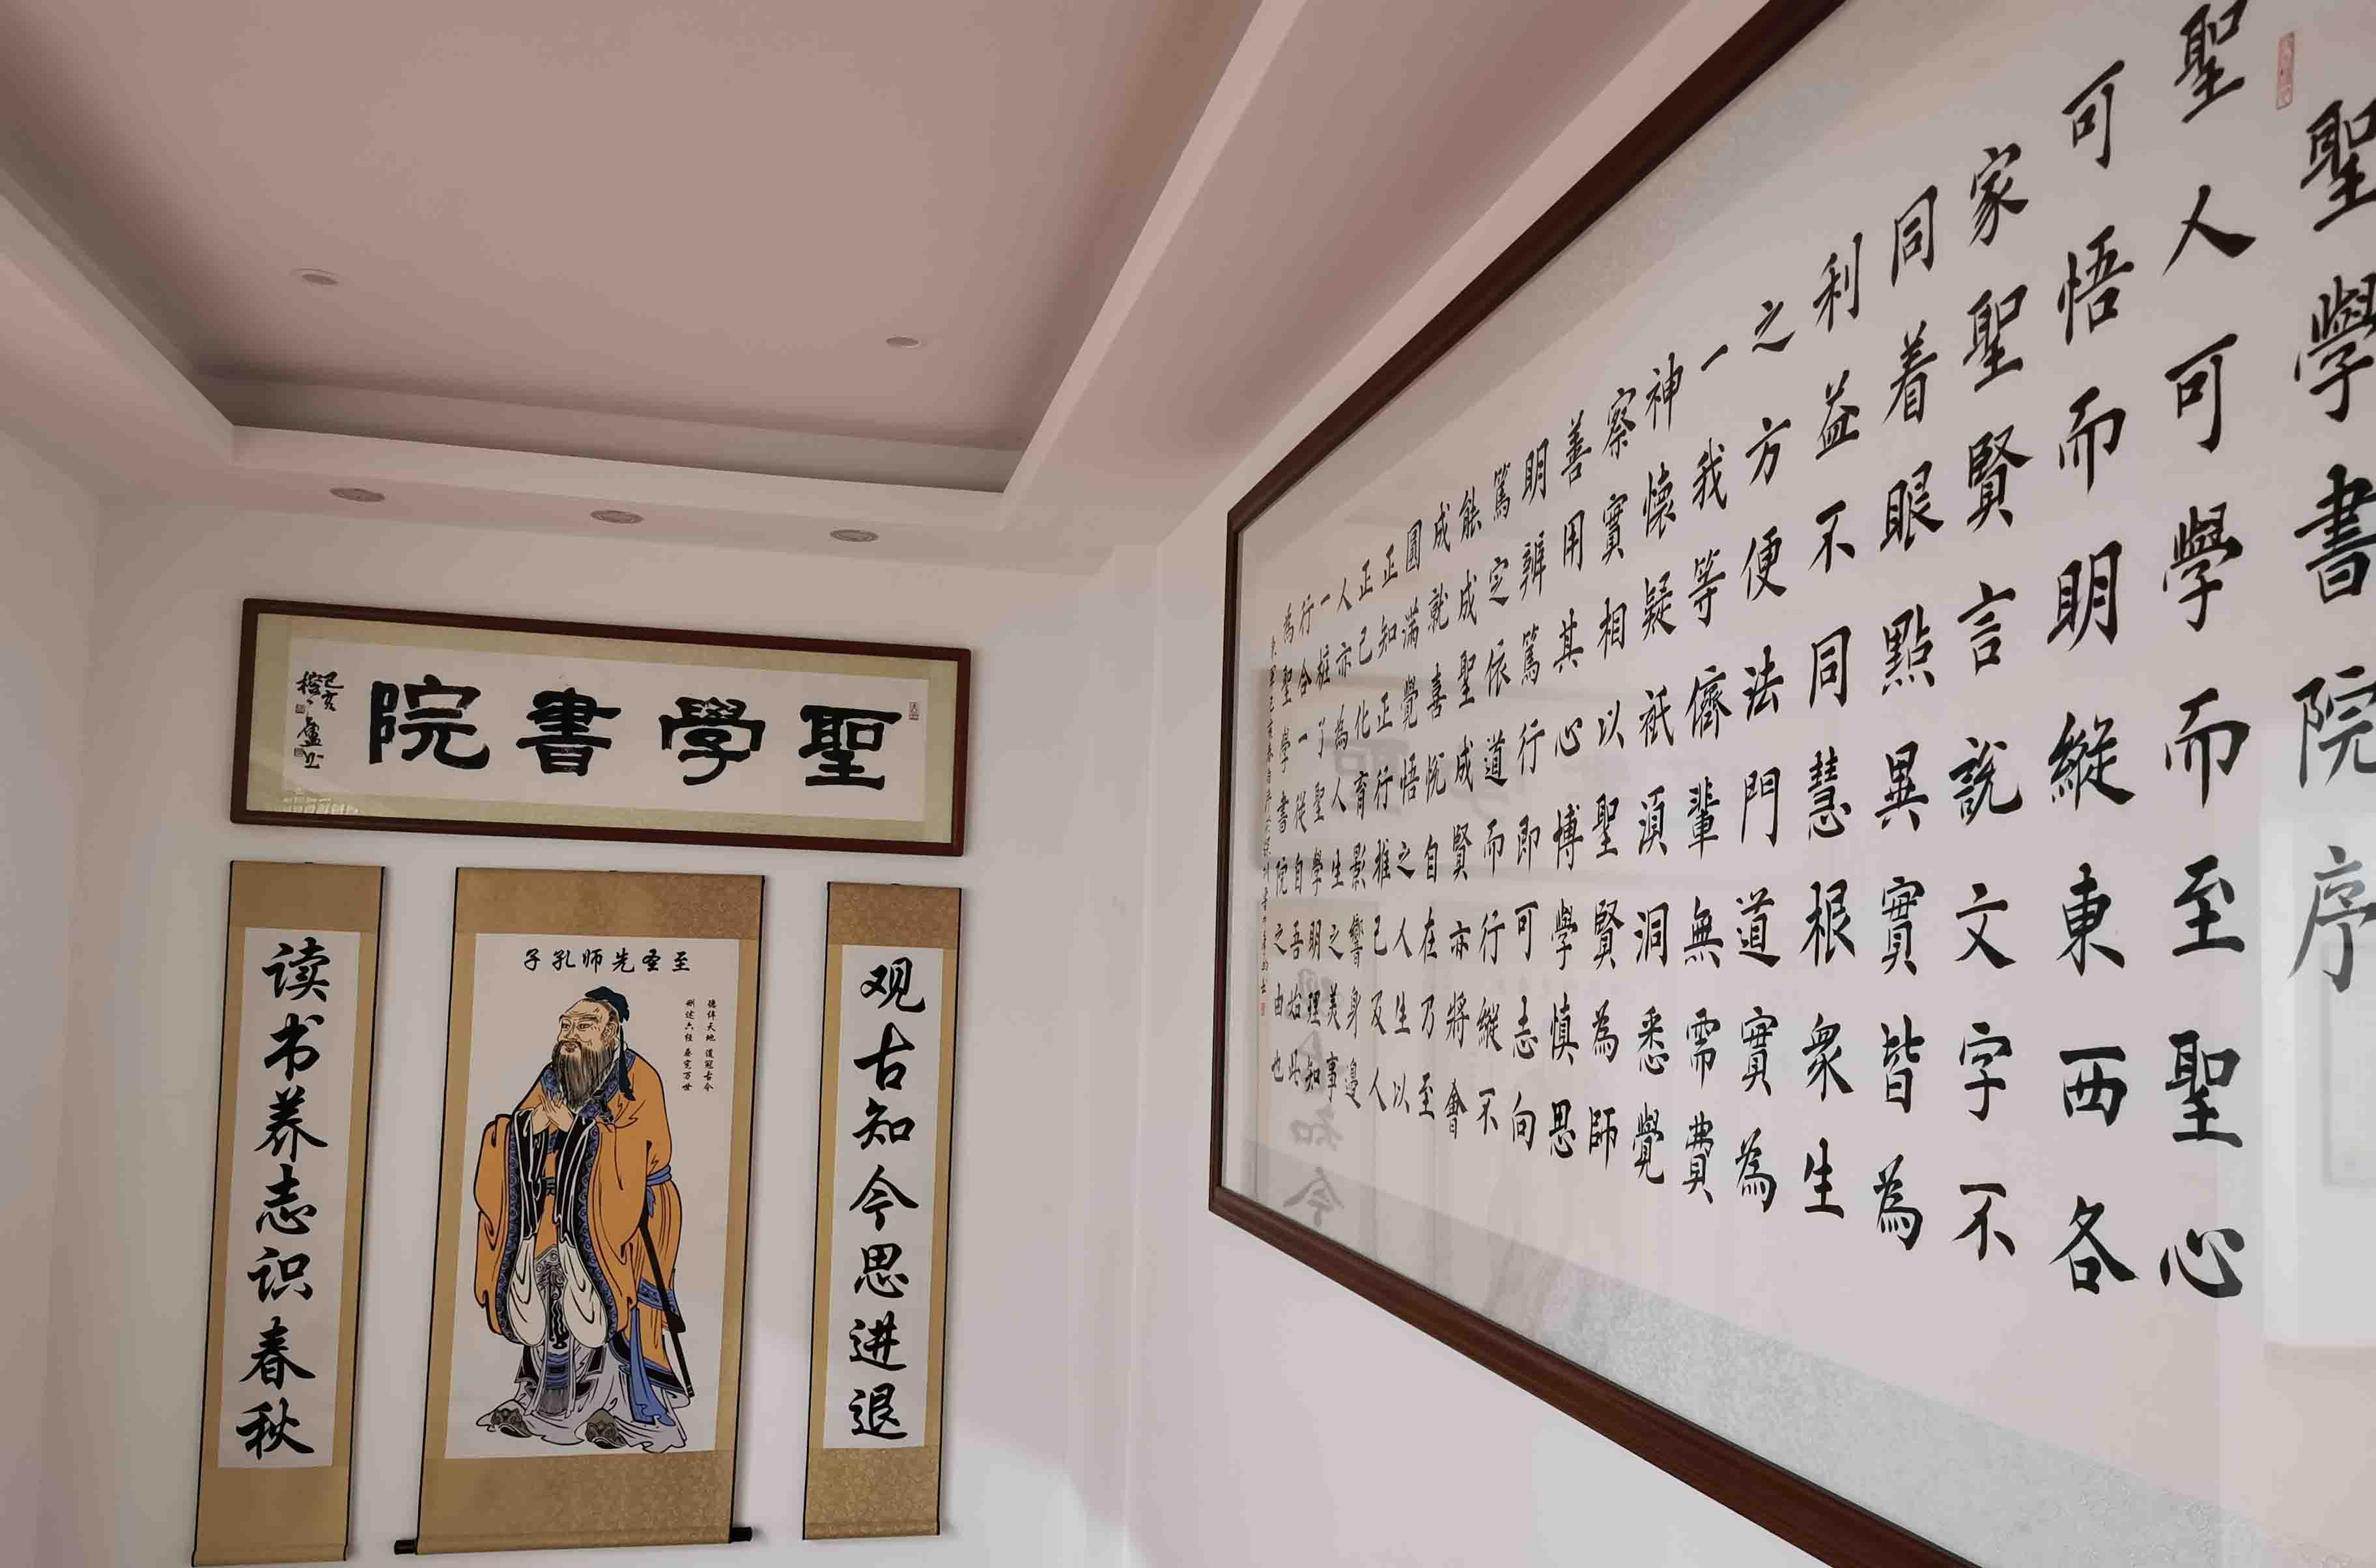 聖學書院
己亥
观古知今思进退
至圣先师孔子
德侔天地 道冠古今
删述六经 垂宪万世
读书养志识春秋
聖學書院序
聖人可學而至聖心
可悟而明縱東西各
家聖賢言說文字不
同着眼點異實皆為
利益不同慧根衆生
之方便法門道實為
一我等儕輩無需費
神懷疑祇湏洞悉覺
察實相以聖賢為師
善用其心博學慎思
明辨篤行即可志向
篤定依道而行縱不
能成聖成賢亦將會
成就喜悅自在乃至
圓滿覺悟之人生以
正知正行推己及人
正己化育影響身邊
人亦為人生之美事
一樁了聖學明理知
行合一從自吾始此
為聖學書院之由也